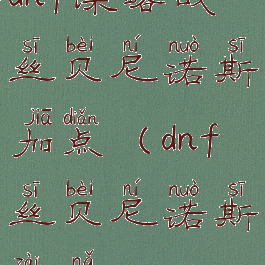 sī bèi ní nuò sī
丝贝尼诺斯
jiā diǎn
加点（dnf
sī bèi ní nuò sī
丝贝尼诺斯